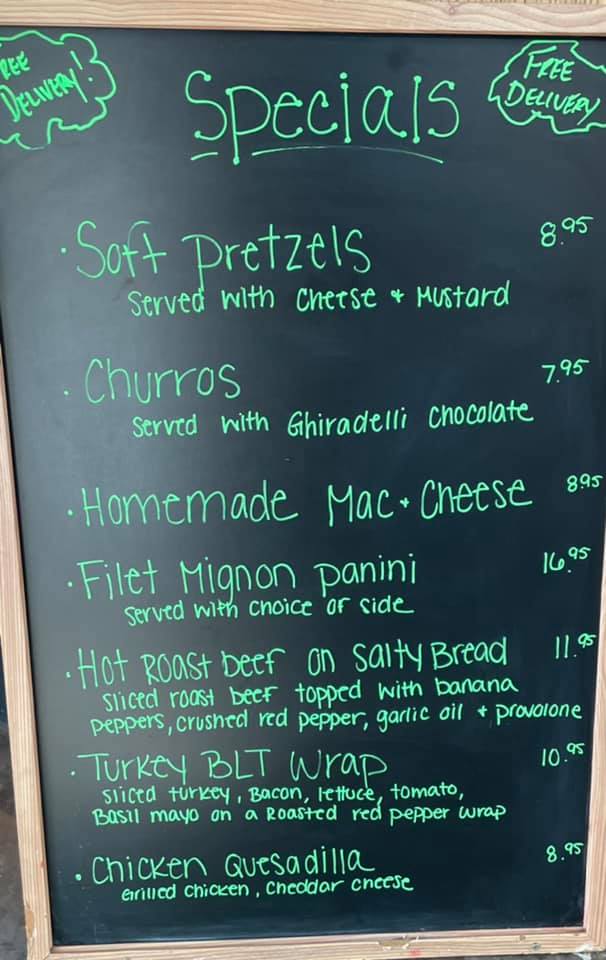 REE
DELIVERY!
Specials
FREE
DELIVERY
· Soft Pretzels 8.95
Served with Cheese + Mustard
· Churros 7.95
Served with Ghiradelli Chocolate
· Homemade Mac + Cheese 8.95
· Filet Mignon panini 16.95
Served with choice of side
· Hot Roast beef on Salty Bread 11.95
Sliced roast beef topped with banana
peppers, crushed red pepper, garlic oil + provolone
· Turkey BLT Wrap 10.95
Sliced turkey, Bacon, lettuce, tomato,
Basil mayo on a Roasted red pepper wrap
· Chicken Quesadilla 8.95
Grilled Chicken, Cheddar cheese